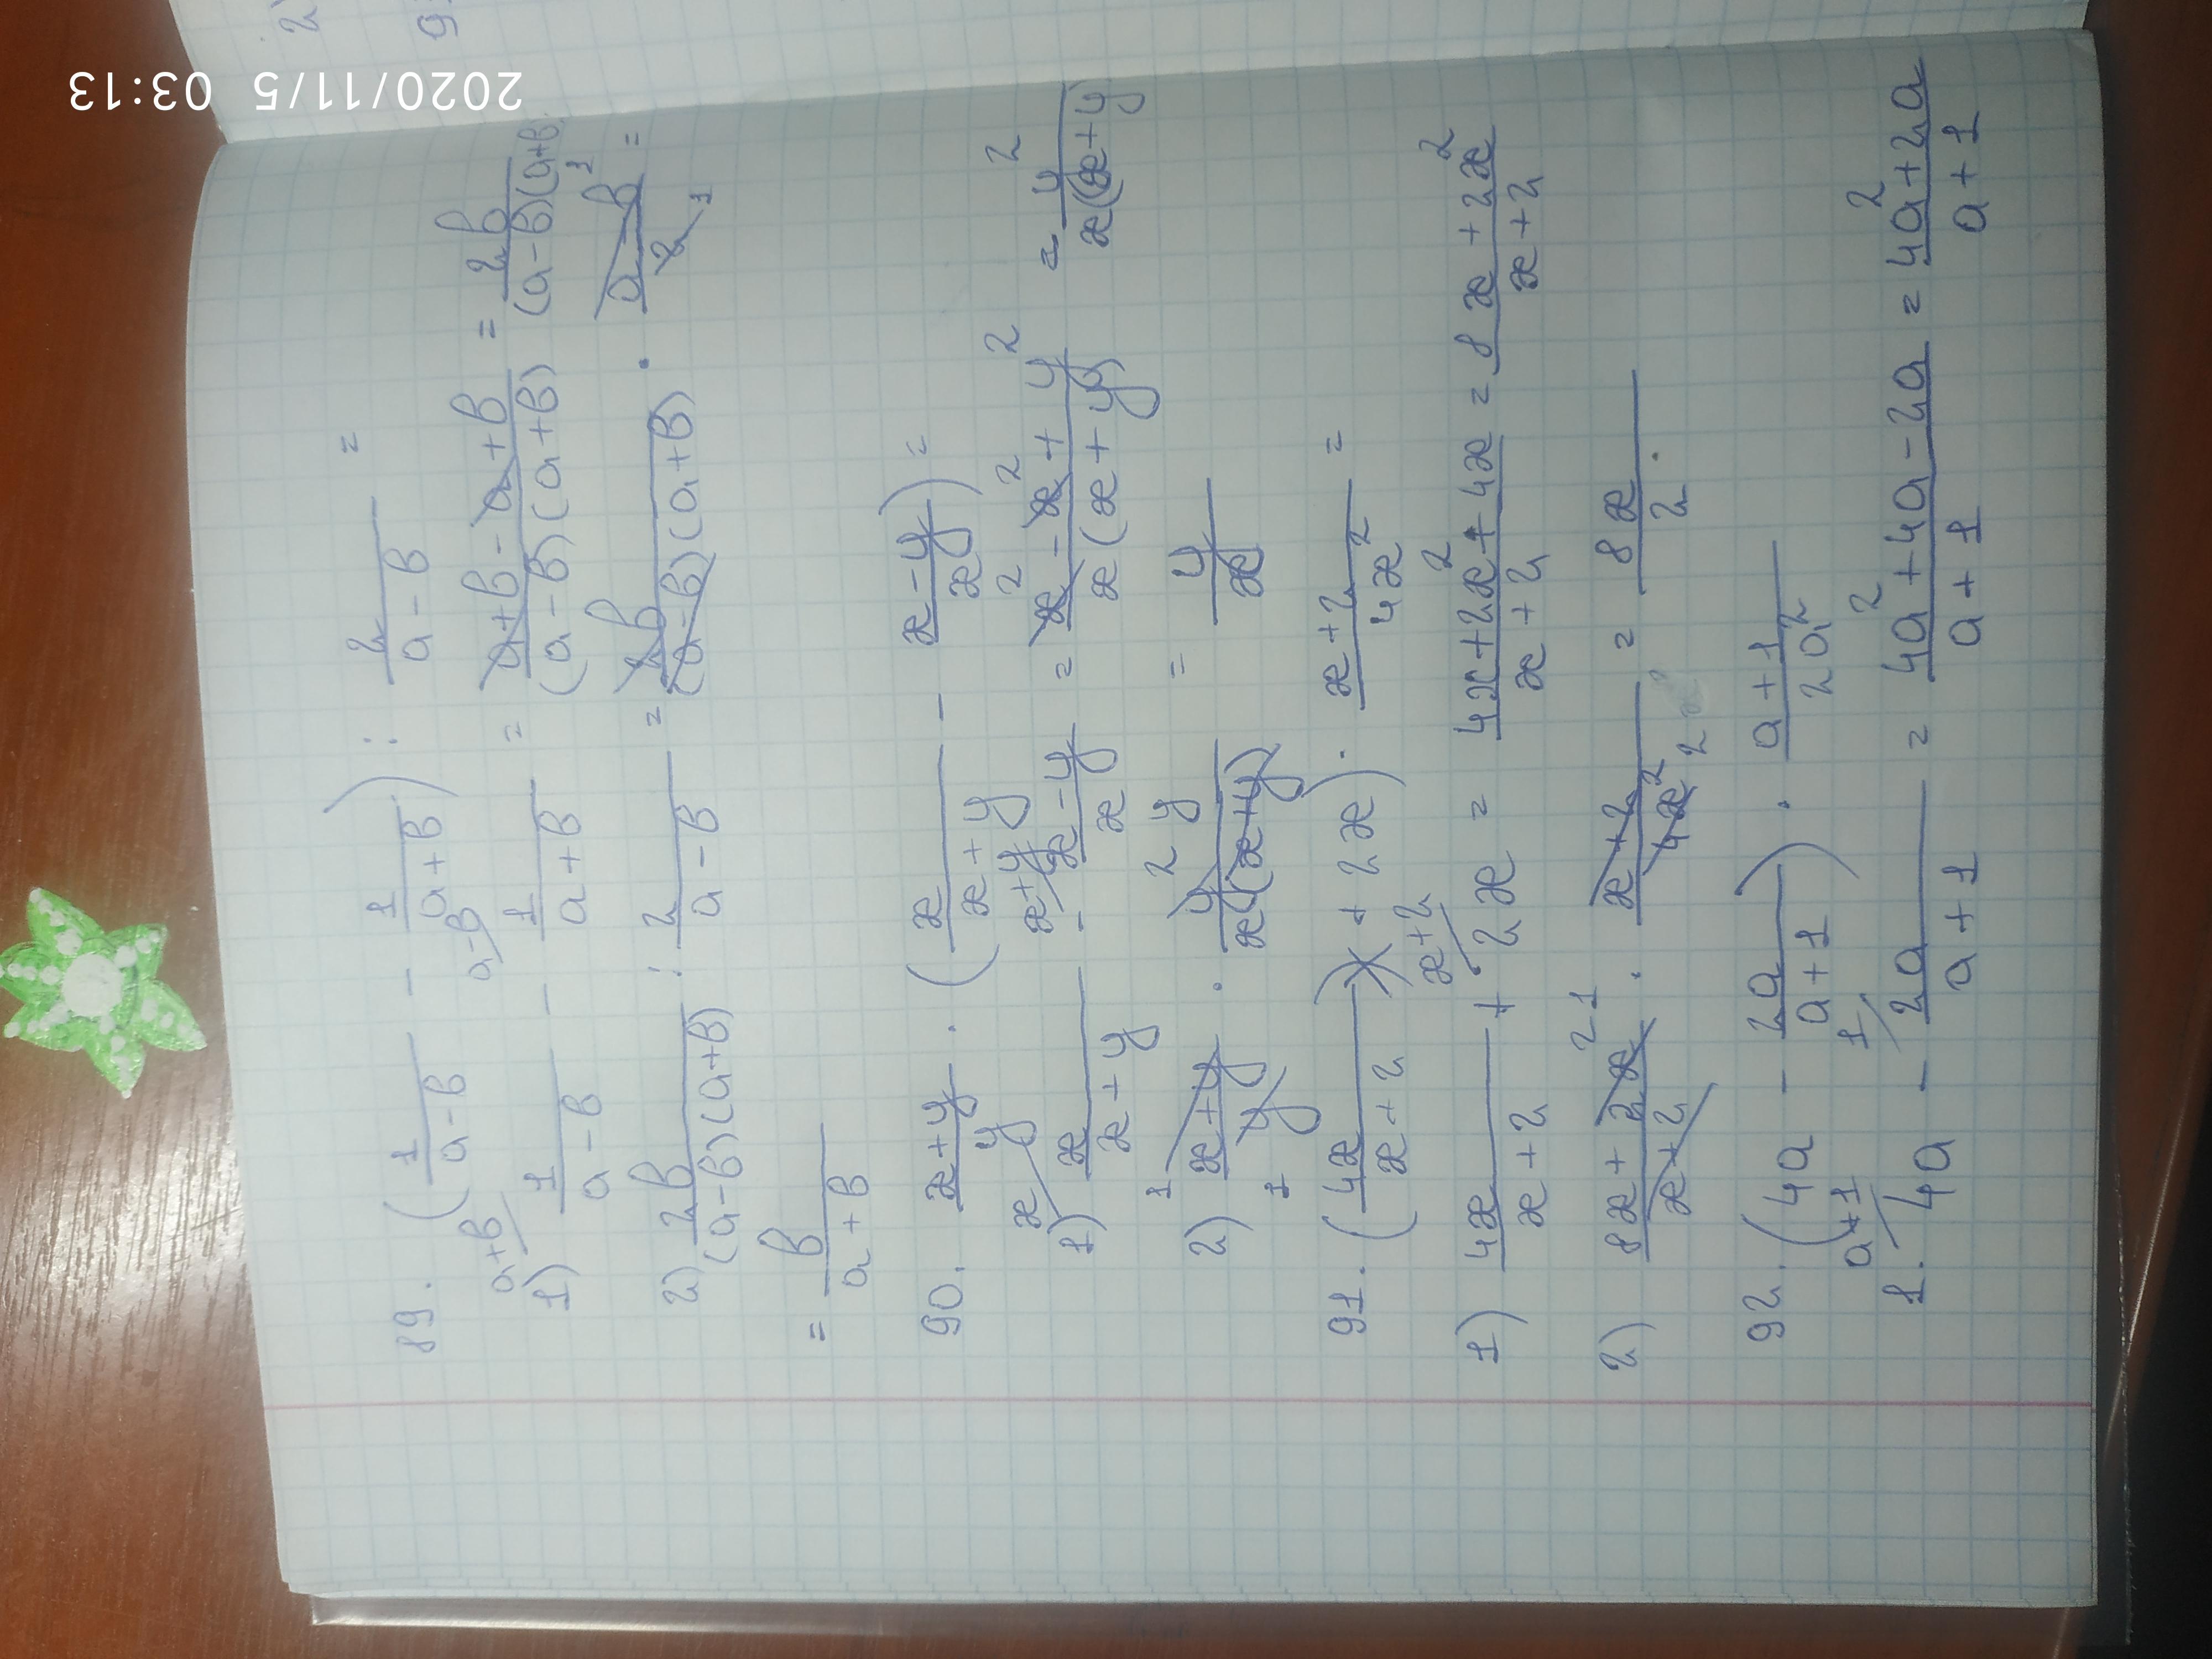 2020/11/5 03:13
2)
9
89. (1/(a-b) - 1/(a+b)) : 2/(a-b) =
a+b a-b
1) 1/(a-b) - 1/(a+b) = (a+b-a+b)/((a-b)(a+b)) = 2b/((a-b)(a+b))
1
2) 2b/((a-b)(a+b)) : 2/(a-b) = 2b/((a-b)(a+b)) · (a-b)/2 =
1
= b/(a+b)
90. (x+y)/y · (x/(x+y) - (x-y)/x) =
x x+y
1) x/(x+y) - (x-y)/x = (x²-x²+y²)/(x(x+y)) = y²/(x(x+y))
1 y
2) (x+y)/y · y²/(x(x+y)) = y/x
1
91. (4x/(x+2) + 2x) · (x+2)/4x² =
x+2
1) 4x/(x+2) + 2x = (4x+2x²+4x)/(x+2) = (8x+2x²)/(x+2)
2 1
2) (8x+2x²)/(x+2) · (x+2)/4x² = 8x/2.
2x
92. (4a - 2a/(a+1)) · (a+1)/2a²
a+1 1
1. 4a - 2a/(a+1) = (4a²+4a-2a)/(a+1) = (4a²+2a)/(a+1)